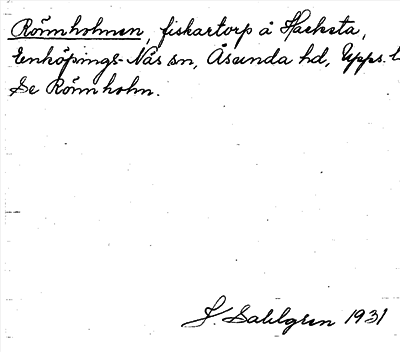 Rönnholmen, fiskartorp å Hacksta,
Enköpings-Näs sn, Åsunda hd, Upps. l
Se Rönnholm.
J. Sahlgren 1931